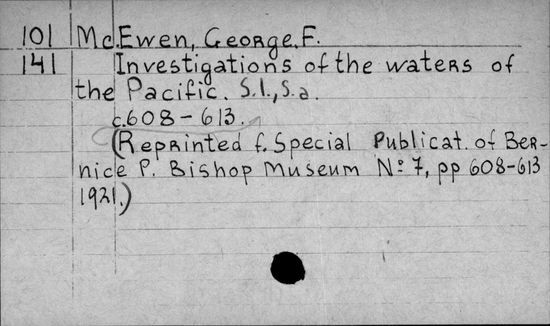 101 McEwen, George.F.
141 Investigations of the waters of
the Pacific. S.l., S.a.
c.608-613.
(Reprinted f. Special Publicat. of Ber-
nice P. Bishop Museum No 7, pp 608-613
1921.)